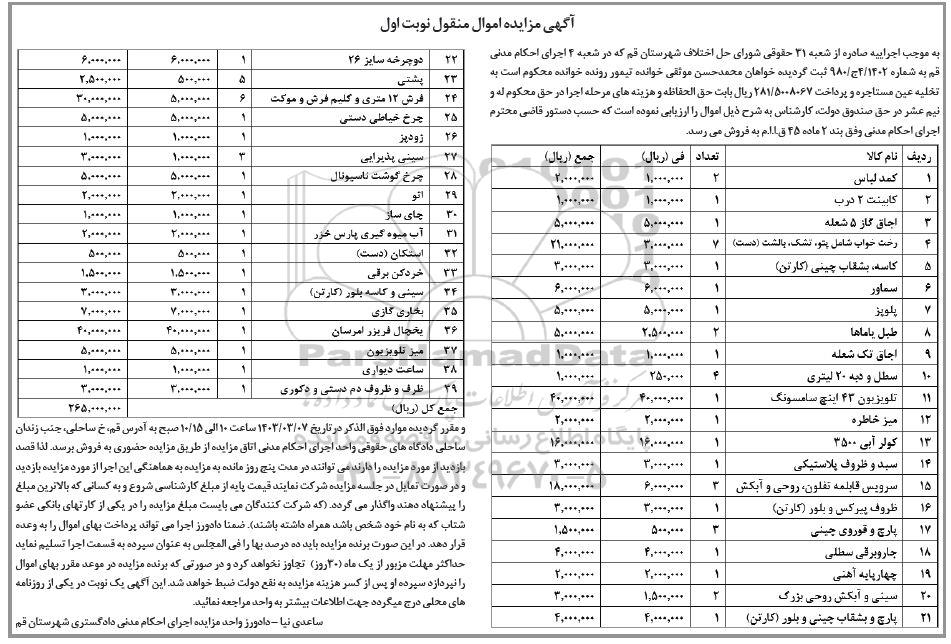 آگهی مزایده اموال منقول نوبت اول
به موجب اجراییه صادره از شعبه ۳۱ حقوقی شورای حل اختلاف شهرستان قم که در شعبه ۴ اجرای احکام مدنی
قم به شماره ۹۸۰/ج۴/۱۴۰۲ ثبت گردیده خواهان محمدحسن موثقی خوانده تیمور رونده خوانده محکوم است به
تخلیه عین مستاجره و پرداخت ۲۸۱/۵۰۰۸۰۶۷ ریال بابت حق الحفاظه و هزینه های مرحله اجرا در حق محکوم له و
نیم عشر در حق صندوق دولت، کارشناس به شرح ذیل اموال را ارزیابی نموده است که حسب دستور قاضی محترم
اجرای احکام مدنی وفق بند ۲ ماده ۴۵ ق.ا.ا.م به فروش می رسد.
ردیف نام کالا تعداد فی (ریال) جمع (ریال)
۱ کمد لباس ۲ ۱,۰۰۰,۰۰۰ ۲,۰۰۰,۰۰۰
۲ کابینت ۲ درب ۱ ۱,۰۰۰,۰۰۰ ۱,۰۰۰,۰۰۰
۳ اجاق گاز ۵ شعله ۱ ۵,۰۰۰,۰۰۰ ۵,۰۰۰,۰۰۰
۴ رخت خواب شامل پتو، تشک، بالشت (دست) ۷ ۳,۰۰۰,۰۰۰ ۲۱,۰۰۰,۰۰۰
۵ کاسه، بشقاب چینی (کارتن) ۱ ۳,۰۰۰,۰۰۰ ۳,۰۰۰,۰۰۰
۶ سماور ۱ ۶,۰۰۰,۰۰۰ ۶,۰۰۰,۰۰۰
۷ پلوپز ۱ ۵,۰۰۰,۰۰۰ ۵,۰۰۰,۰۰۰
۸ طبل یاماها ۲ ۲,۵۰۰,۰۰۰ ۵,۰۰۰,۰۰۰
۹ اجاق تک شعله ۱ ۱,۰۰۰,۰۰۰ ۱,۰۰۰,۰۰۰
۱۰ سطل و دبه ۲۰ لیتری ۴ ۲۵۰,۰۰۰ ۱,۰۰۰,۰۰۰
۱۱ تلویزیون ۴۳ اینچ سامسونگ ۱ ۴۰,۰۰۰,۰۰۰ ۴۰,۰۰۰,۰۰۰
۱۲ میز خاطره ۱ ۲,۰۰۰,۰۰۰ ۲,۰۰۰,۰۰۰
۱۳ کولر آبی ۳۵۰۰ ۱ ۱۶,۰۰۰,۰۰۰ ۱۶,۰۰۰,۰۰۰
۱۴ سبد و ظروف پلاستیکی ۱ ۳,۰۰۰,۰۰۰ ۳,۰۰۰,۰۰۰
۱۵ سرویس قابلمه تفلون، روحی و آبکش ۳ ۶,۰۰۰,۰۰۰ ۱۸,۰۰۰,۰۰۰
۱۶ ظروف پیرکس و بلور (کارتن) ۱ ۳,۰۰۰,۰۰۰ ۳,۰۰۰,۰۰۰
۱۷ پارچ و قوروی چینی ۳ ۵۰۰,۰۰۰ ۱,۵۰۰,۰۰۰
۱۸ جاروبرقی سطلی ۱ ۴,۰۰۰,۰۰۰ ۴,۰۰۰,۰۰۰
۱۹ چهارپایه آهنی ۱ ۲,۰۰۰,۰۰۰ ۲,۰۰۰,۰۰۰
۲۰ سینی و آبکش روحی بزرگ ۲ ۱,۵۰۰,۰۰۰ ۳,۰۰۰,۰۰۰
۲۱ پارچ و بشقاب چینی و بلور (کارتن) ۱ ۴,۰۰۰,۰۰۰ ۴,۰۰۰,۰۰۰
۲۲ دوچرخه سایز ۲۶ ۱ ۶,۰۰۰,۰۰۰ ۶,۰۰۰,۰۰۰
۲۳ پشتی ۵ ۵۰۰,۰۰۰ ۲,۵۰۰,۰۰۰
۲۴ فرش ۱۲ متری و گلیم فرش و موکت ۶ ۵,۰۰۰,۰۰۰ ۳۰,۰۰۰,۰۰۰
۲۵ چرخ خیاطی دستی ۱ ۵,۰۰۰,۰۰۰ ۵,۰۰۰,۰۰۰
۲۶ زودپز ۱ ۱,۰۰۰,۰۰۰ ۱,۰۰۰,۰۰۰
۲۷ سینی پذیرایی ۳ ۱,۰۰۰,۰۰۰ ۳,۰۰۰,۰۰۰
۲۸ چرخ گوشت ناسیونال ۱ ۵,۰۰۰,۰۰۰ ۵,۰۰۰,۰۰۰
۲۹ اتو ۱ ۲,۰۰۰,۰۰۰ ۲,۰۰۰,۰۰۰
۳۰ چای ساز ۱ ۱,۰۰۰,۰۰۰ ۱,۰۰۰,۰۰۰
۳۱ آب میوه گیری پارس خزر ۱ ۲,۰۰۰,۰۰۰ ۲,۰۰۰,۰۰۰
۳۲ استکان (دست) ۱ ۵۰۰,۰۰۰ ۵۰۰,۰۰۰
۳۳ خردکن برقی ۱ ۱,۵۰۰,۰۰۰ ۱,۵۰۰,۰۰۰
۳۴ سینی و کاسه بلور (کارتن) ۱ ۳,۰۰۰,۰۰۰ ۳,۰۰۰,۰۰۰
۳۵ بخاری گازی ۱ ۷,۰۰۰,۰۰۰ ۷,۰۰۰,۰۰۰
۳۶ یخچال فریزر امرسان ۱ ۴۰,۰۰۰,۰۰۰ ۴۰,۰۰۰,۰۰۰
۳۷ میز تلویزیون ۱ ۵,۰۰۰,۰۰۰ ۵,۰۰۰,۰۰۰
۳۸ ساعت دیواری ۱ ۱,۰۰۰,۰۰۰ ۱,۰۰۰,۰۰۰
۳۹ ظرف و ظروف دم دستی و دکوری ۱ ۳,۰۰۰,۰۰۰ ۳,۰۰۰,۰۰۰
جمع کل (ریال) ۲۶۵,۰۰۰,۰۰۰
و مقرر گردیده موارد فوق الذکر در تاریخ ۱۴۰۳/۰۳/۰۷ ساعت ۱۰ الی ۱۰/۱۵ صبح به آدرس قم، خ ساحلی، جنب زندان
ساحلی دادگاه های حقوقی واحد اجرای احکام مدنی اتاق مزایده از طریق مزایده حضوری به فروش برسد. لذا قصد
بازدید از مورد مزایده را دارند می توانند در مدت پنج روز مانده به مزایده به هماهنگی این اجرا از مورد مزایده بازدید
و در صورت تمایل در جلسه مزایده شرکت نمایند قیمت پایه از مبلغ کارشناسی شروع و به کسانی که بالاترین مبلغ
را پیشنهاد دهند واگذار می گردد. (که شرکت کنندگان می بایست مبلغ مزایده را در یکی از کارتهای بانکی عضو
شتاب که به نام خود شخص باشد همراه داشته باشند). ضمنا دادورز اجرا می تواند پرداخت بهای اموال را به وعده
قرار دهد. در این صورت برنده مزایده باید ده درصد بها را فی المجلس به عنوان سپرده به قسمت اجرا تسلیم نماید
حداکثر مهلت مزبور از یک ماه (۳۰روز) تجاوز نخواهد کرد و در صورتی که برنده مزایده در موعد مقرر بهای اموال
را نپردازد سپرده او پس از کسر هزینه مزایده به نفع دولت ضبط خواهد شد. این آگهی یک نوبت در یکی از روزنامه
های محلی درج میگردد جهت اطلاعات بیشتر به واحد مراجعه نمائید.
ساعدی نیا -دادورز واحد مزایده اجرای احکام مدنی دادگستری شهرستان قم
ParsNamadData